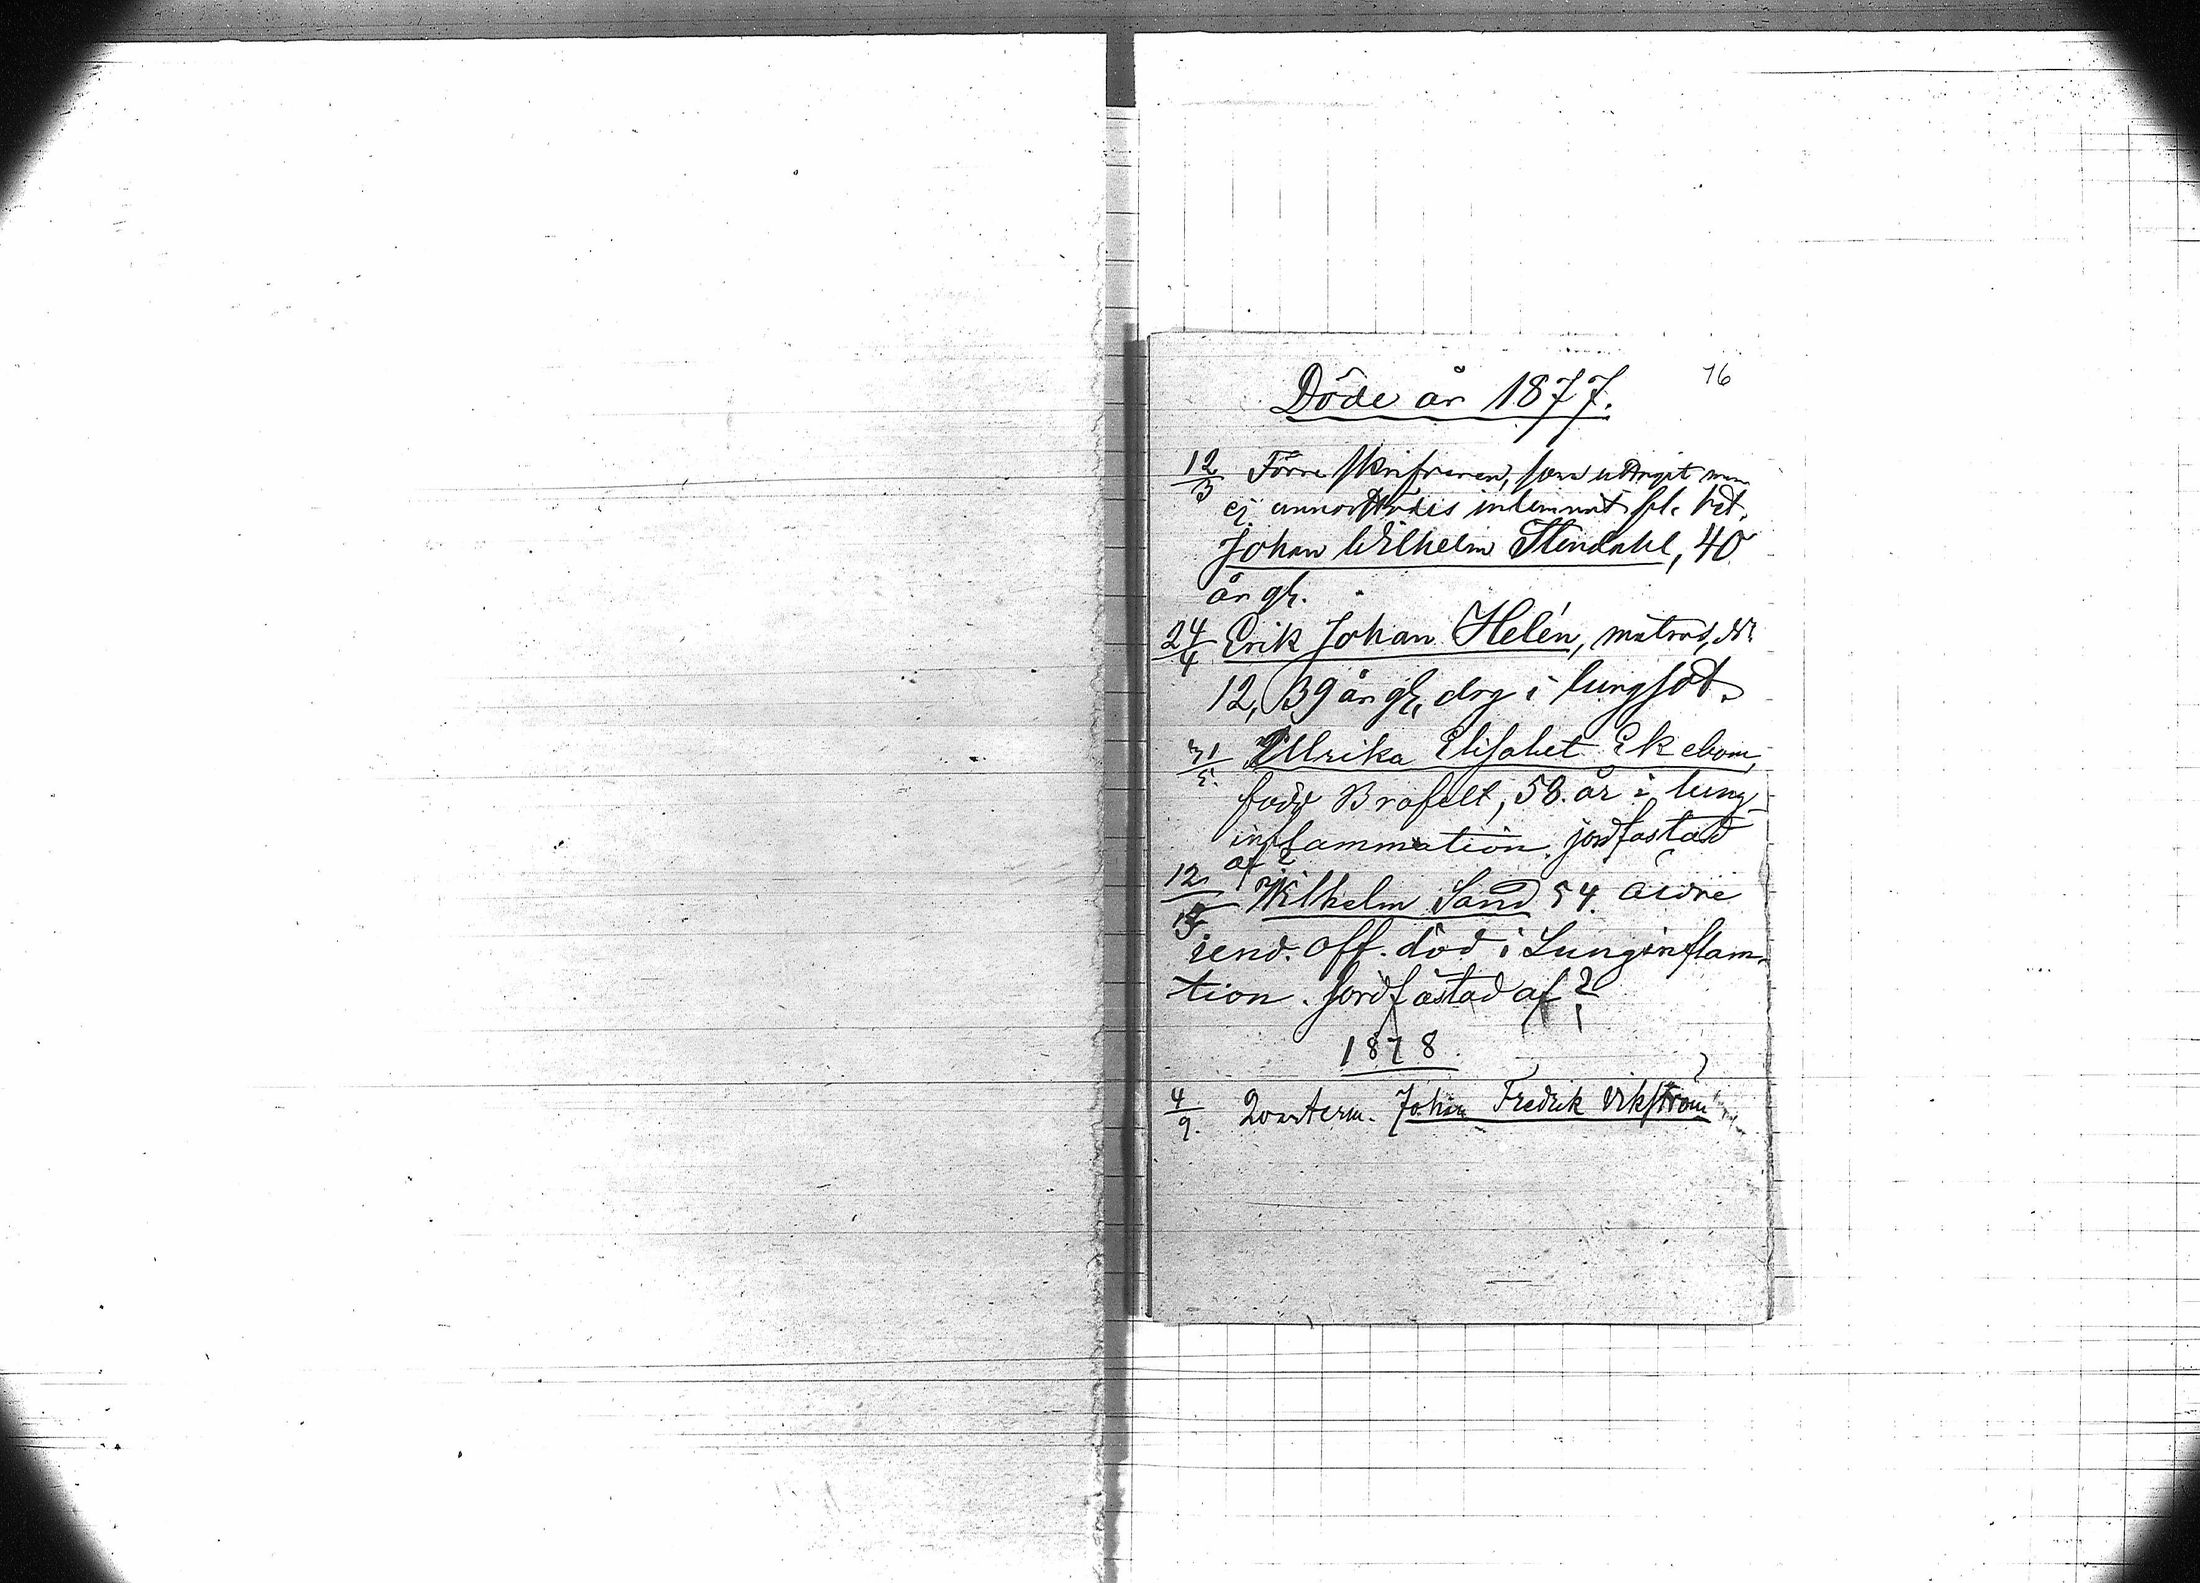 16
Döde år 1877.
12/3 Förre skrifvaren, som uttagit men
ej annorstädes inlemnat fl. bet.
Johan Wilhelm Stendahl, 40
år gl.
24/4 Erik Johan Helén, matros, N:
12, 39 år gl, dog i lungsot.
31/5. Ulrika Elisabet Ekebom,
född Brafelt, 58. år i lung-
inflammation. jordfästad
af
12 Wilhelm Sand 54. äldre
iend. off. död i Lunginflam-
tion. Jordfästad af
1878.
4/9. Quarterm. Johan Fredrik Vikström